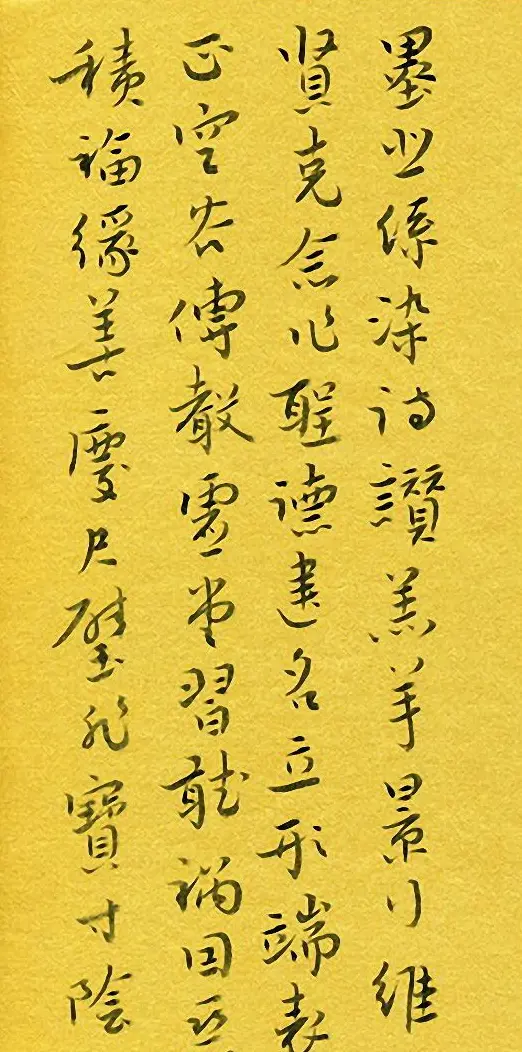 墨悲絲染詩讚羔羊景行維
賢克念作聖德建名立形端表
正空谷傳聲虛堂習聽禍因惡
積福緣善慶尺璧非寶寸陰